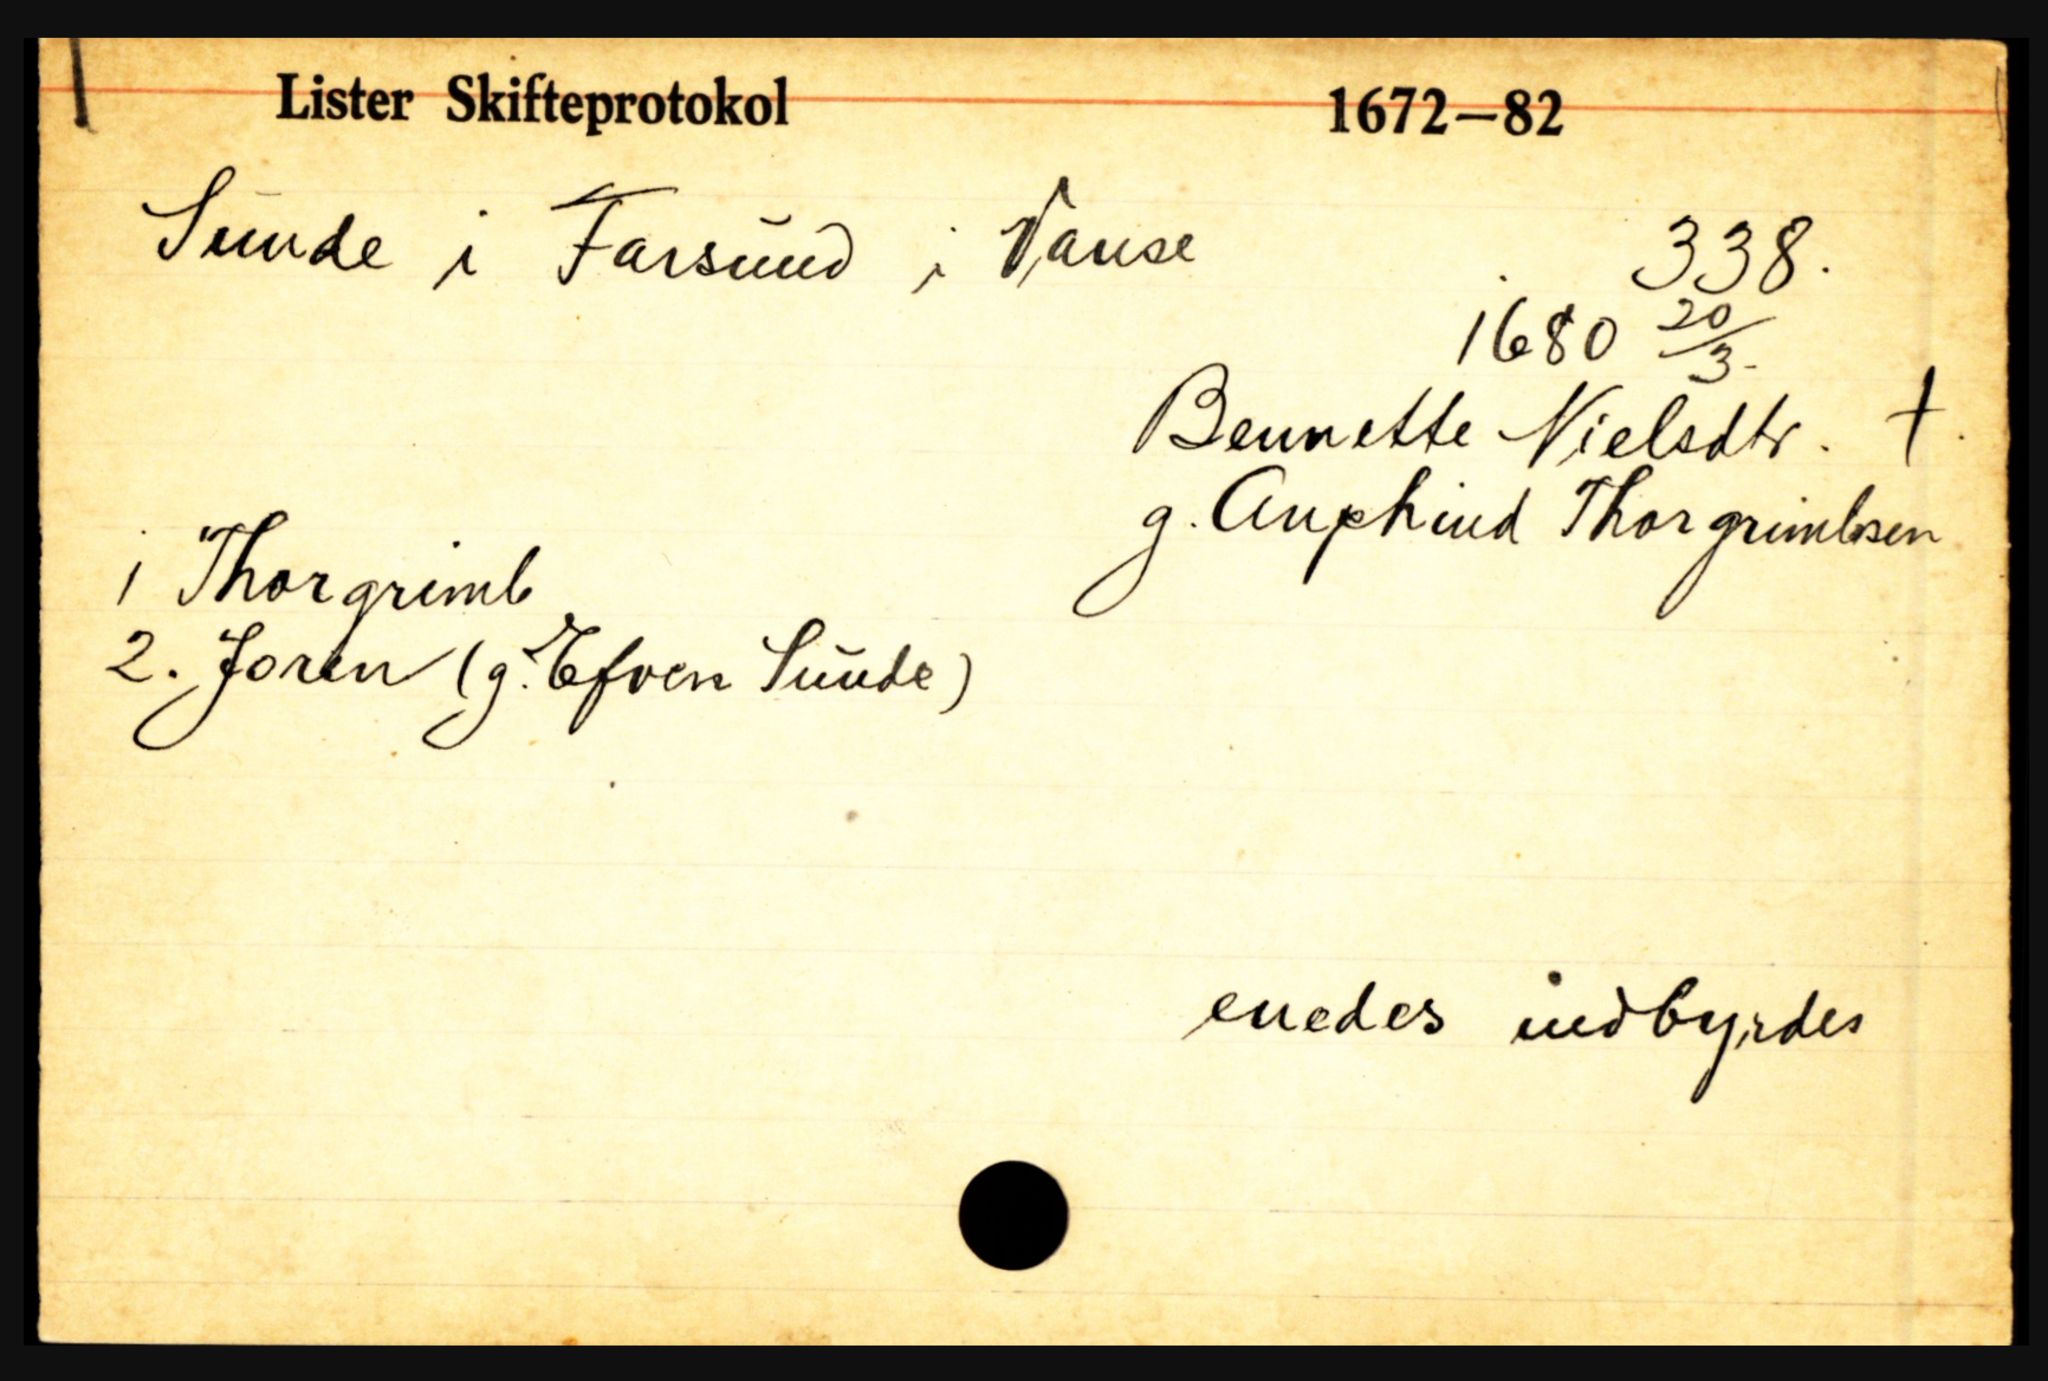 Lister Skifteprotokol 1672—82
Sunde i Farsund i Vanse 338.
1680 20/3.
Bennette Nielsdtr. †.
g. Anphind Thorgrimbsen
1 Thorgrimb
2. Joren (g. Efven Sunde)
enedes indbyrdes